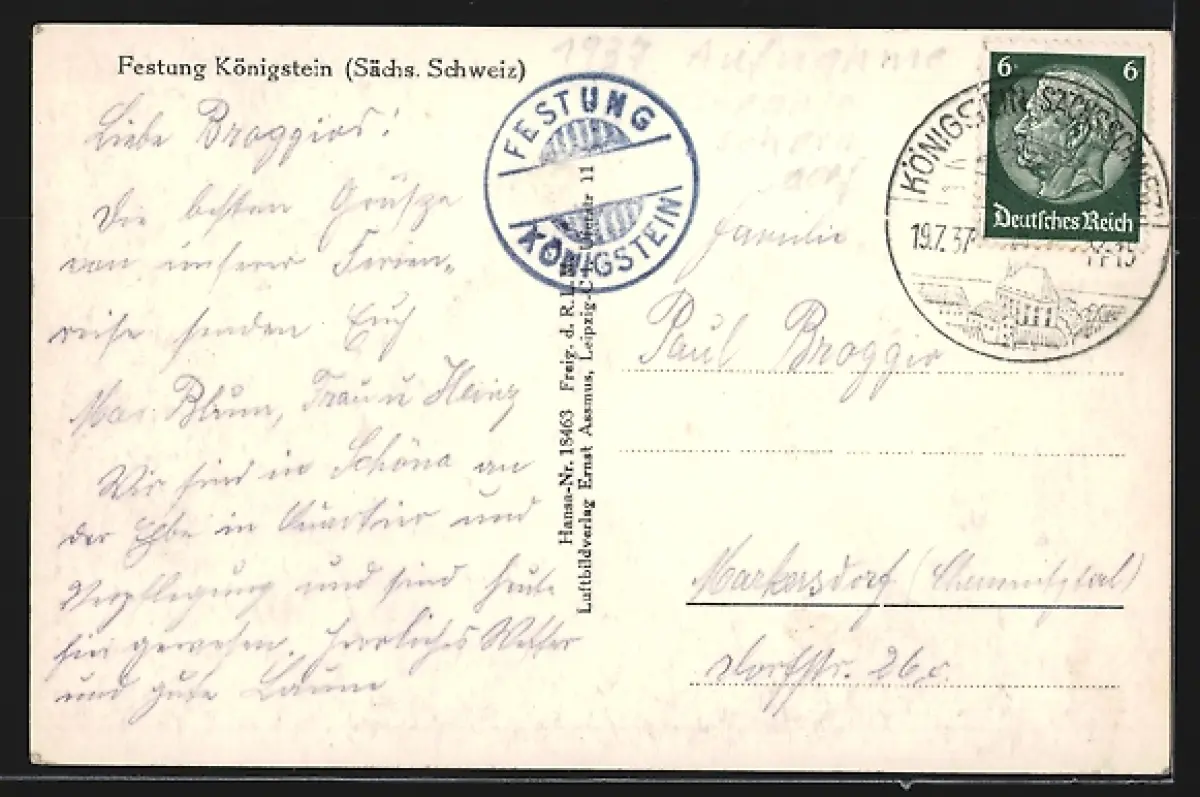 Festung Königstein (Sächs. Schweiz)
Liebe Broggios!
Die besten Grüsze
von unserer Ferien-
reise senden Euch
Max Blum, Frau u Heinz
Wir sind in Schöna an
der Elbe in Quartier und
Verpflegung und sind heute
hier gewesen. Herrliches Wetter
und gute Laune
FESTUNG
KÖNIGSTEIN
Hansa-Nr. 18463 Freig. d. R.L.
Luftbildverlag Ernst Assmus, Leipzig-C
11
1937 Aufnahme
6 6
Deutsches Reich
KÖNIGSTEIN
19.7.37
Familie
Paul Broggio
Markersdorf (Chemnitztal)
Dorfstr. 26c.